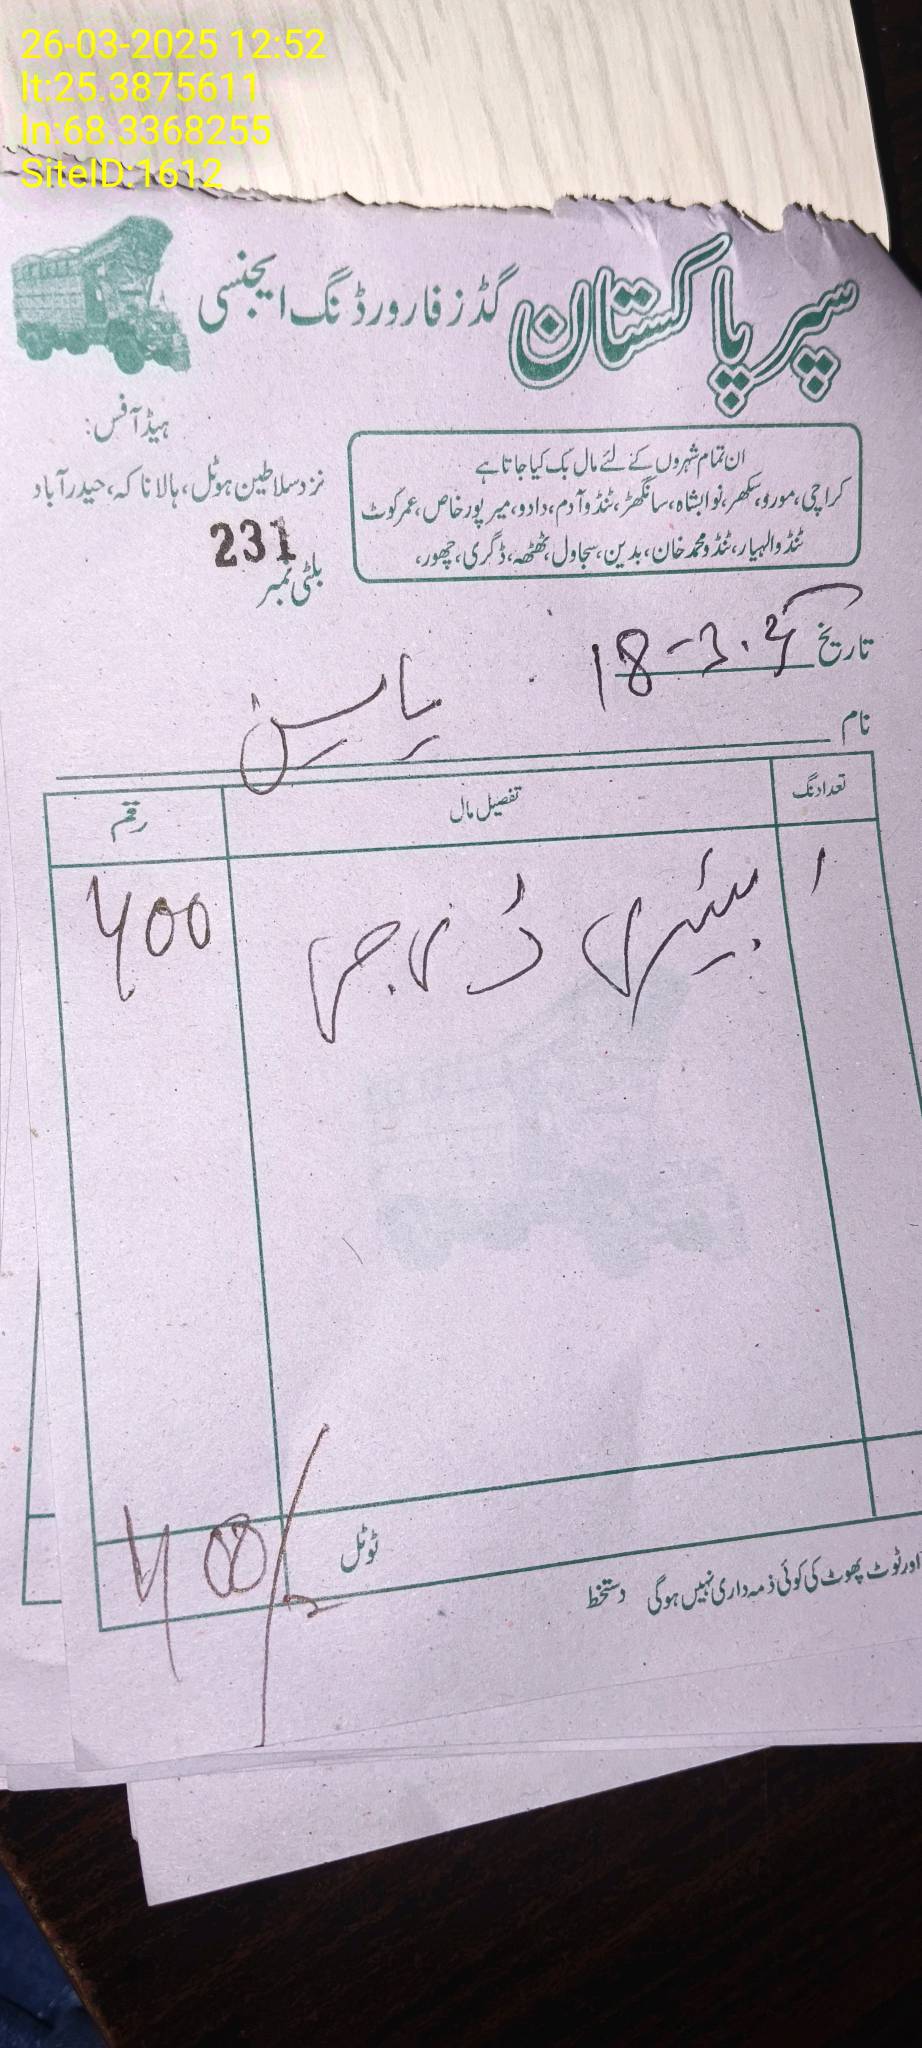 26-03-2025 12:52
lt:25.3875611
ln:68.3368255
SiteID:1612
سپر پاکستان گڈز فارورڈنگ ایجنسی
ہیڈ آفس:
نزد سلاطین ہوٹل، ہالا ناکہ، حیدرآباد
ان تمام شہروں کے لئے مال بک کیا جاتا ہے
کراچی، مورو، سکھر، نوابشاہ، سانگھڑ، ٹنڈو آدم، دادو، میرپورخاص، عمرکوٹ
ٹنڈوالہیار، ٹنڈو محمد خان، بدین، سجاول، ٹھٹھہ، ڈگری، چھور،
231
بلٹی نمبر
تاریخ 18-3.25
نام یاسین
تعداد نگ تفصیل مال رقم
۱ بیٹری 400
ٹوٹل 400/
اور ٹوٹ پھوٹ کی کوئی ذمہ داری نہیں ہوگی دستخط